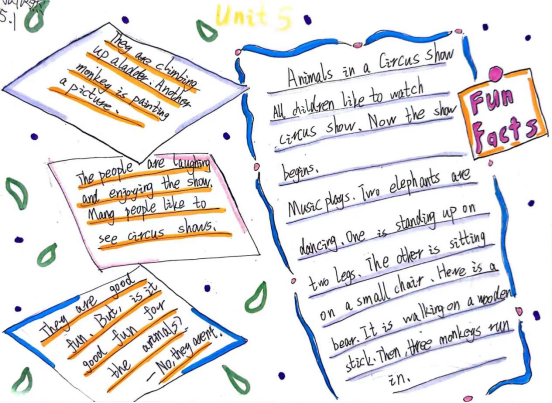 Unit 5
5.1
They are climbing
up a ladder. Another
monkey is painting
a picture.
The people are laughing
and enjoying the show.
Many people like to
see circus shows.
They are good
fun. But, is it
good fun for
the animals?
— No, they arent.
Animals in a Circus show
All children like to watch
circus show. Now the show
begins.
Music plays. Two elephants are
dancing. One is standing up on
two legs. The other is sitting
on a small chair. Here is a
bear. It is walking on a wooden
stick. Then, three monkeys run
in.
Fun
Facts